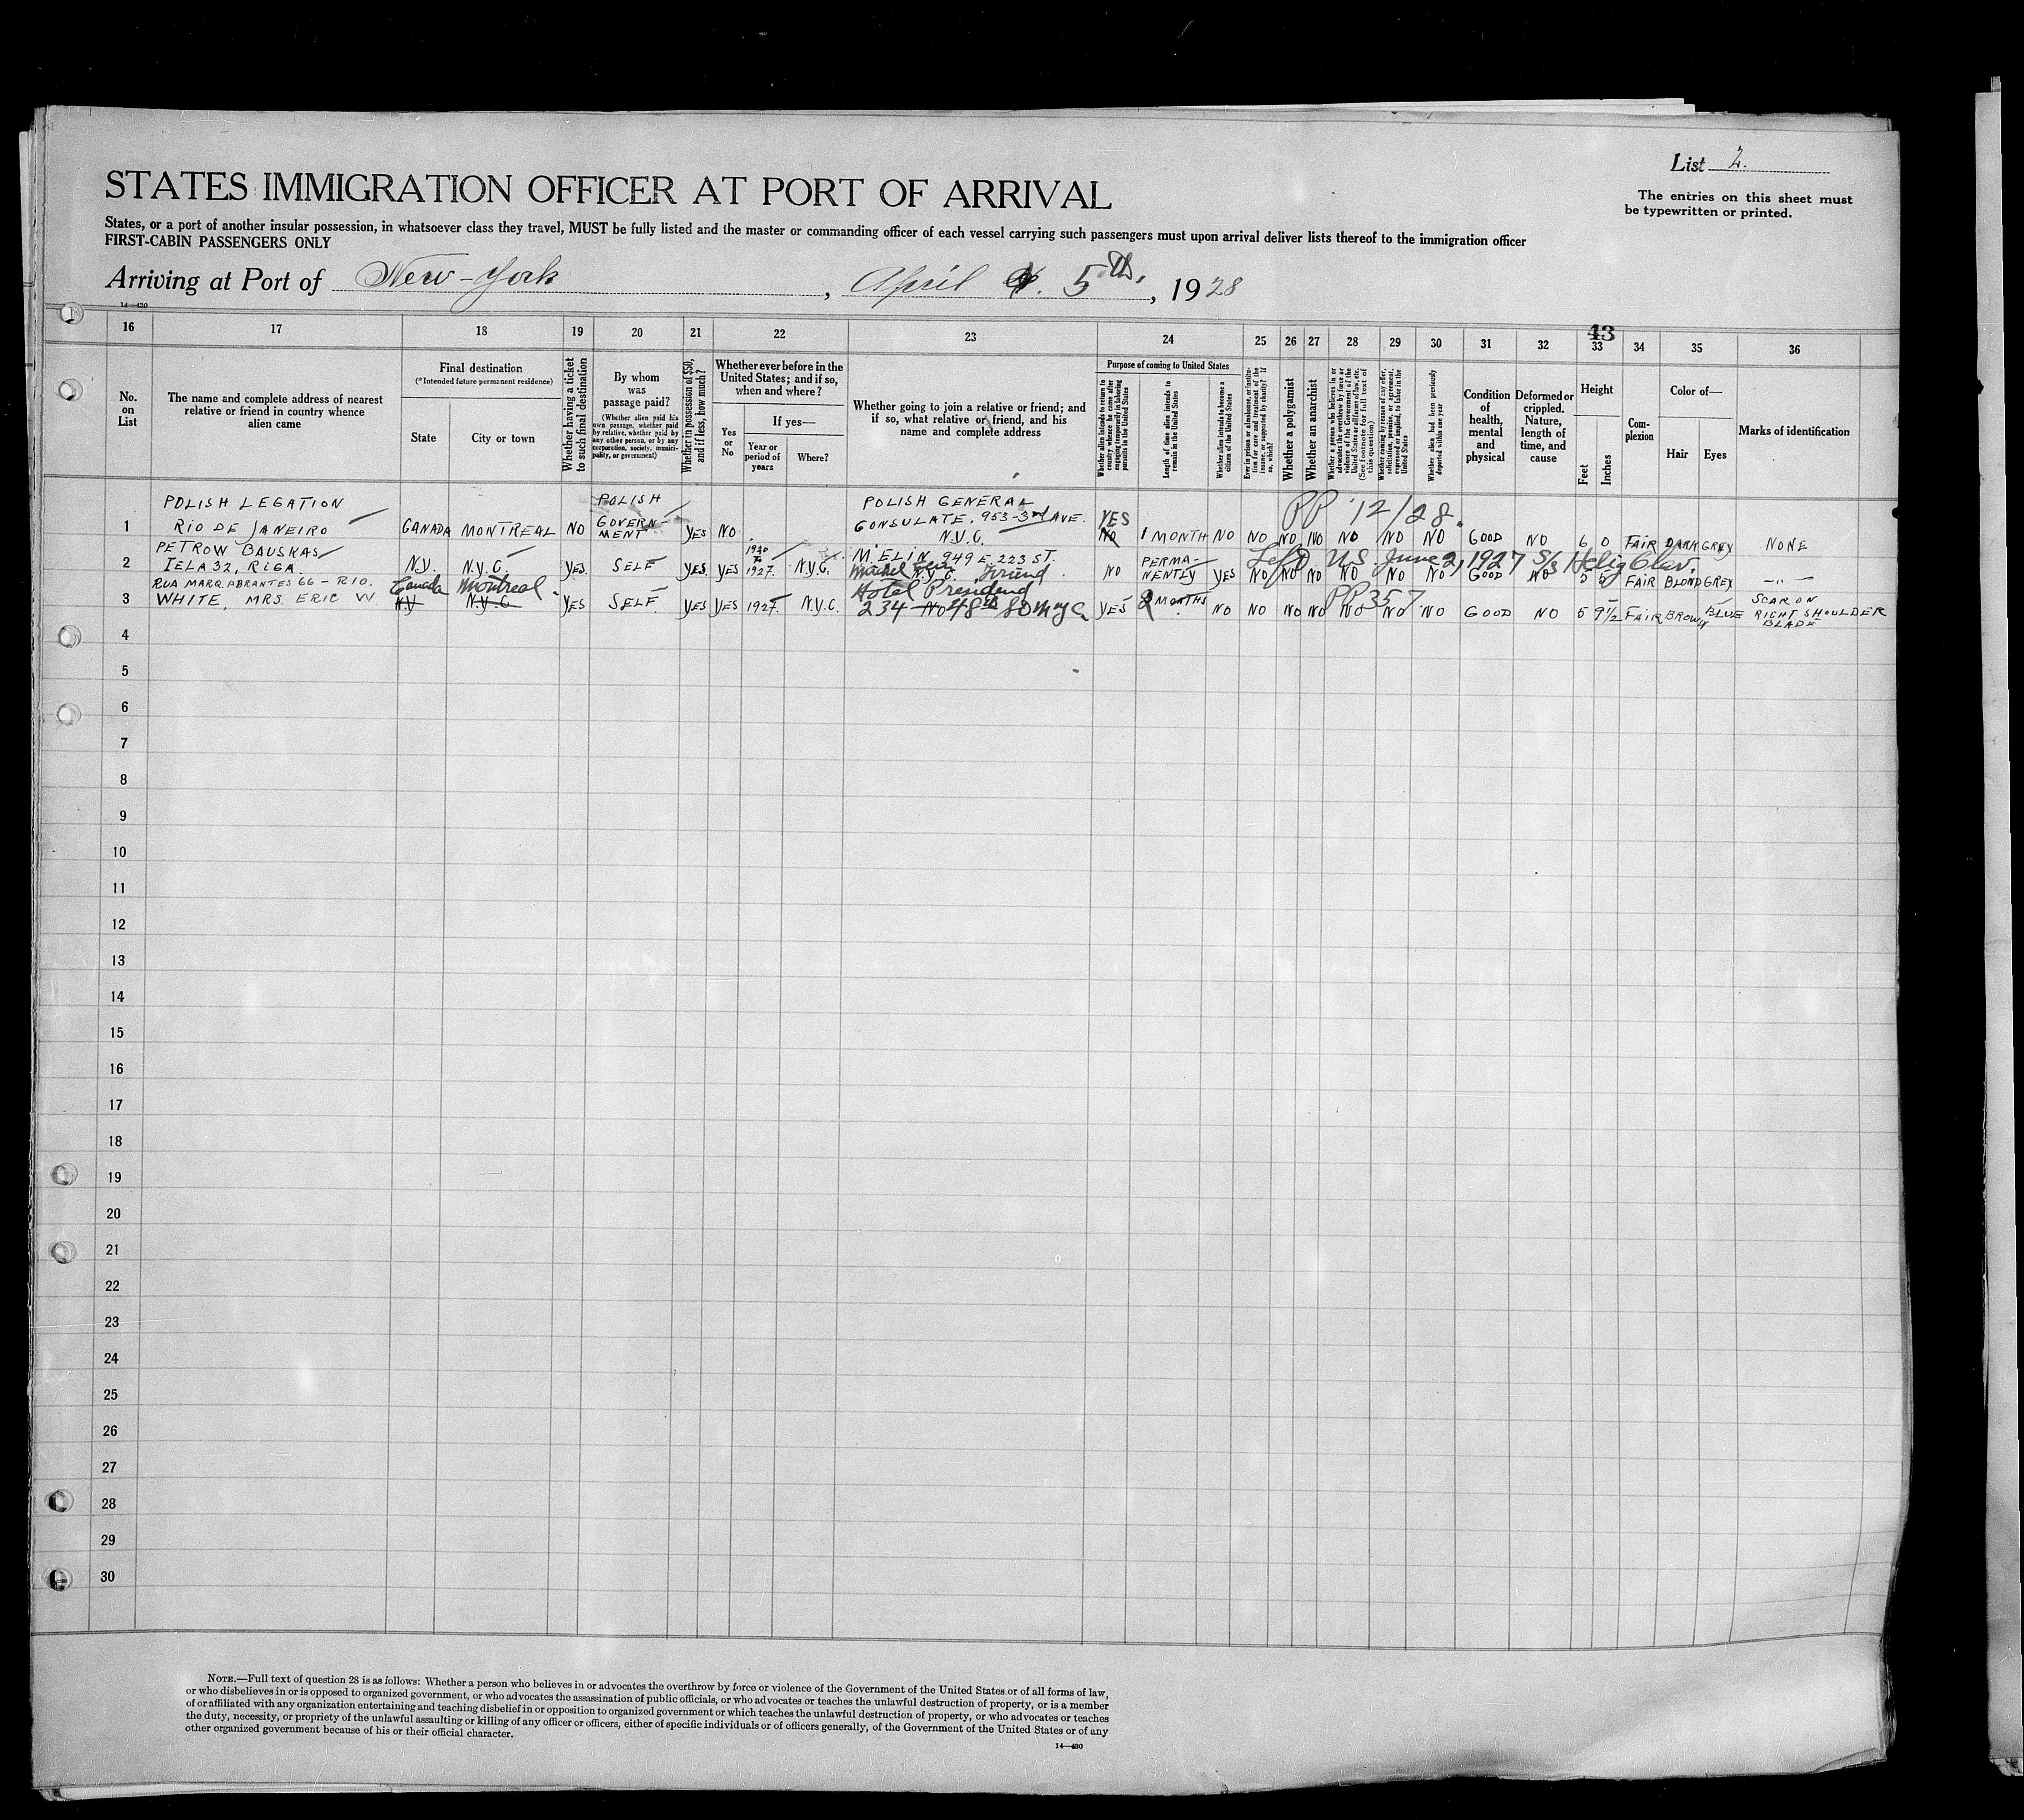 List 2.
STATES IMMIGRATION OFFICER AT PORT OF ARRIVAL
The entries on this sheet must
be typewritten or printed.
States, or a port of another insular possession, in whatsoever class they travel, MUST be fully listed and the master or commanding officer of each vessel carrying such passengers must upon arrival deliver lists thereof to the immigration officer
FIRST-CABIN PASSENGERS ONLY
Arriving at Port of New-York, April 5th, 1928
14—430
16 17 18 19 20 21 22 23 24 25 26 27 28 29 30 31 32 33 34 35 36
43
No. on List
The name and complete address of nearest relative or friend in country whence alien came
Final destination
(*Intended future permanent residence)
State
City or town
Whether having a ticket to such final destination
By whom was passage paid?
(Whether alien paid his own passage, whether paid by relative, whether paid by any other person, or by any corporation, society, municipality, or government)
Whether in possession of $50, and if less, how much?
Whether ever before in the United States; and if so, when and where?
Yes or No
If yes—
Year or period of years
Where?
Whether going to join a relative or friend; and if so, what relative or friend, and his name and complete address
Purpose of coming to United States
Whether alien intends to return to country whence he came after engaging temporarily in laboring pursuits in the United States
Length of time alien intends to remain in the United States
Whether alien intends to become a citizen of the United States
Ever in prison or almshouse, or institution for care and treatment of the insane, or supported by charity? If so, which?
Whether a polygamist
Whether an anarchist
Whether a person who believes in or advocates the overthrow by force or violence of the Government of the United States or all forms of law, etc. (See footnote for full text of this question)
Whether coming by reason of any offer, solicitation, promise, or agreement, expressed or implied, to labor in the United States
Whether alien had been previously deported within one year
Condition of health, mental and physical
Deformed or crippled. Nature, length of time, and cause
Height
Feet
Inches
Complexion
Color of—
Hair
Eyes
Marks of identification
1 POLISH LEGATION RIO DE JANEIRO CANADA MONTREAL NO POLISH GOVERNMENT YES NO POLISH GENERAL CONSULATE. 953-3rd AVE. N.Y.C. YES NO 1 MONTH NO NO NO NO NO NO NO GOOD NO 6 0 FAIR DARK GREY NONE
PP 12/28.
2 PETROW BAUSKAS IELA 32, RIGA. N.Y. N.Y.C. YES. SELF YES. YES 1920 TO 1927. N.Y.C. M. ELIN 949 E-223 ST. N.Y.C. Friend NO PERMANENTLY YES NO NO NO NO NO NO GOOD NO 5 5 FAIR BLOND GREY —"—
Left U.S. June 2, 1927 S/s Helig Olav.
3 RUA MARQ. ABRANTES 66 - RIO. WHITE, MRS. ERIC W Canada Montreal N.Y N.Y.C. YES SELF YES YES 1927. N.Y.C. Hotel President 234 48th YES 2 MONTHS NO NO NO NO NO NO NO GOOD NO 5 9½ FAIR BROWN BLUE SCAR ON RIGHT SHOULDER BLADE
PP357
4
5
6
7
8
9
10
11
12
13
14
15
16
17
18
19
20
21
22
23
24
25
26
27
28
29
30
NOTE.—Full text of question 28 is as follows: Whether a person who believes in or advocates the overthrow by force or violence of the Government of the United States or of all forms of law,
or who disbelieves in or is opposed to organized government, or who advocates the assassination of public officials, or who advocates or teaches the unlawful destruction of property, or is a member
of or affiliated with any organization entertaining and teaching disbelief in or opposition to organized government or which teaches the unlawful destruction of property, or who advocates or teaches
the duty, necessity, or propriety of the unlawful assaulting or killing of any officer or officers, either of specific individuals or of officers generally, of the Government of the United States or of any
other organized government because of his or their official character.
14—430